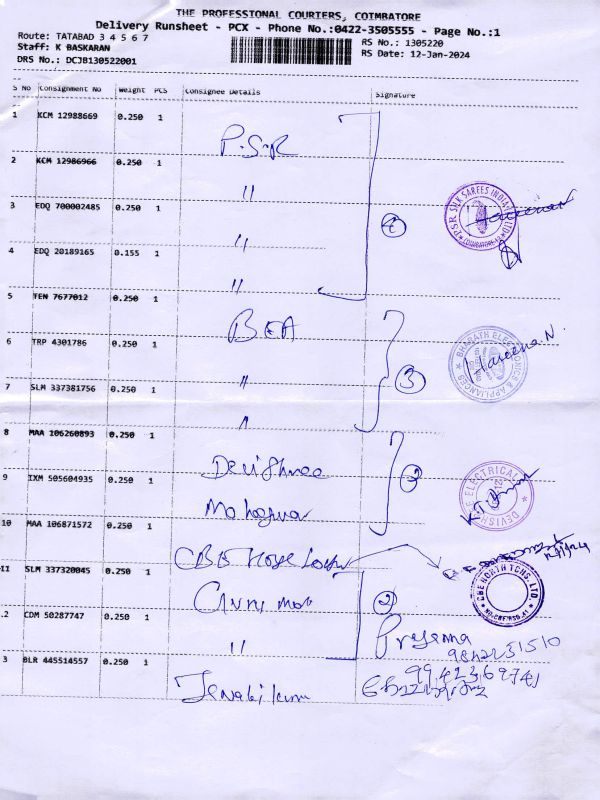 THE PROFESSIONAL COURIERS, COIMBATORE
Delivery Runsheet - PCX - Phone No.:0422-3505555 - Page No.:1
Route: TATABAD 3 4 5 6 7
RS No.: 1305220
Staff: K BASKARAN
RS Date: 12-Jan-2024
DRS No.: DCJB130522001
S No Consignment No Weight PCS Consignee Details Signature
1 KCM 12988669 0.250 1 P.S.R
2 KCM 12986966 0.250 1 "
3 EDQ 700002485 0.250 1 "
4 EDQ 20189165 0.155 1 "
4
PSR SILK SAREES INDIA
COIMBATORE
5 TEN 7677012 0.250 1 BEA
6 TRP 4301786 0.250 1 "
7 SLM 337381756 0.250 1 "
3
BHARATH ELECTRONICS & APPLIANCES
Hareena N.
8 MAA 106260893 0.250 1 Devishree
9 IXM 505604935 0.250 1
2
DEVISHREE ELECTRICAL
10 MAA 106871572 0.250 1 CBE
CBE NORTH TCHS. LTD.
11 SLM 337320045 0.250 1
.2 CDM 50287747 0.250 1 "
2
3 BLR 445514557 0.250 1
9942369741